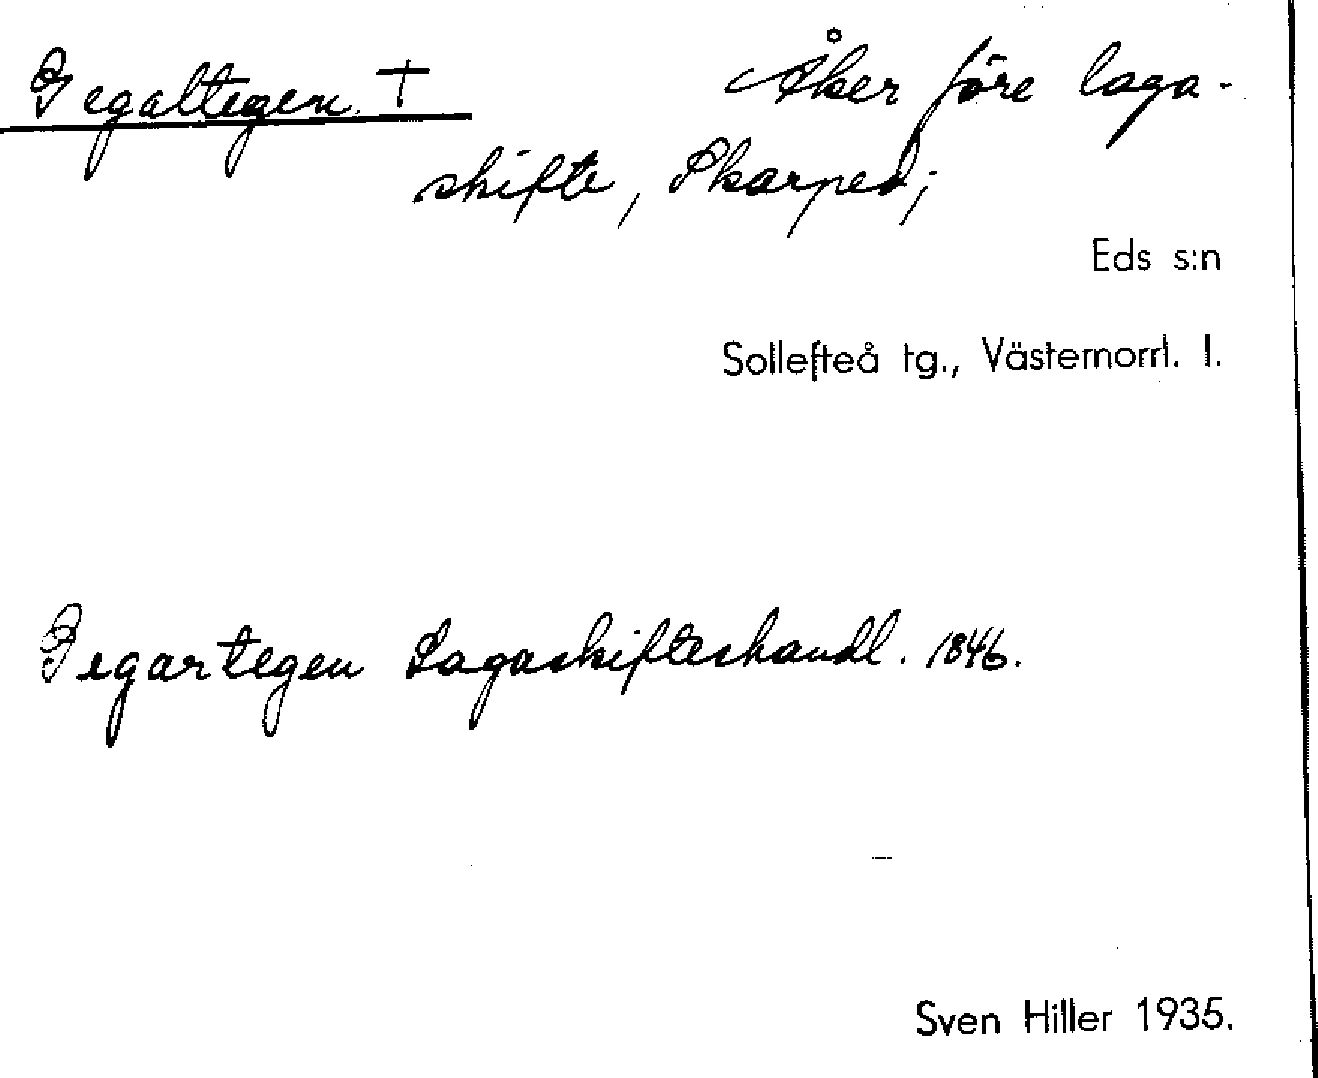 Gegaltegen. † Åker före laga-
skifte, Skarped;
Eds s:n
Sollefteå tg., Västernorrl. l.
Gegartegen Lagaskifteshandl. 1846.
Sven Hiller 1935.